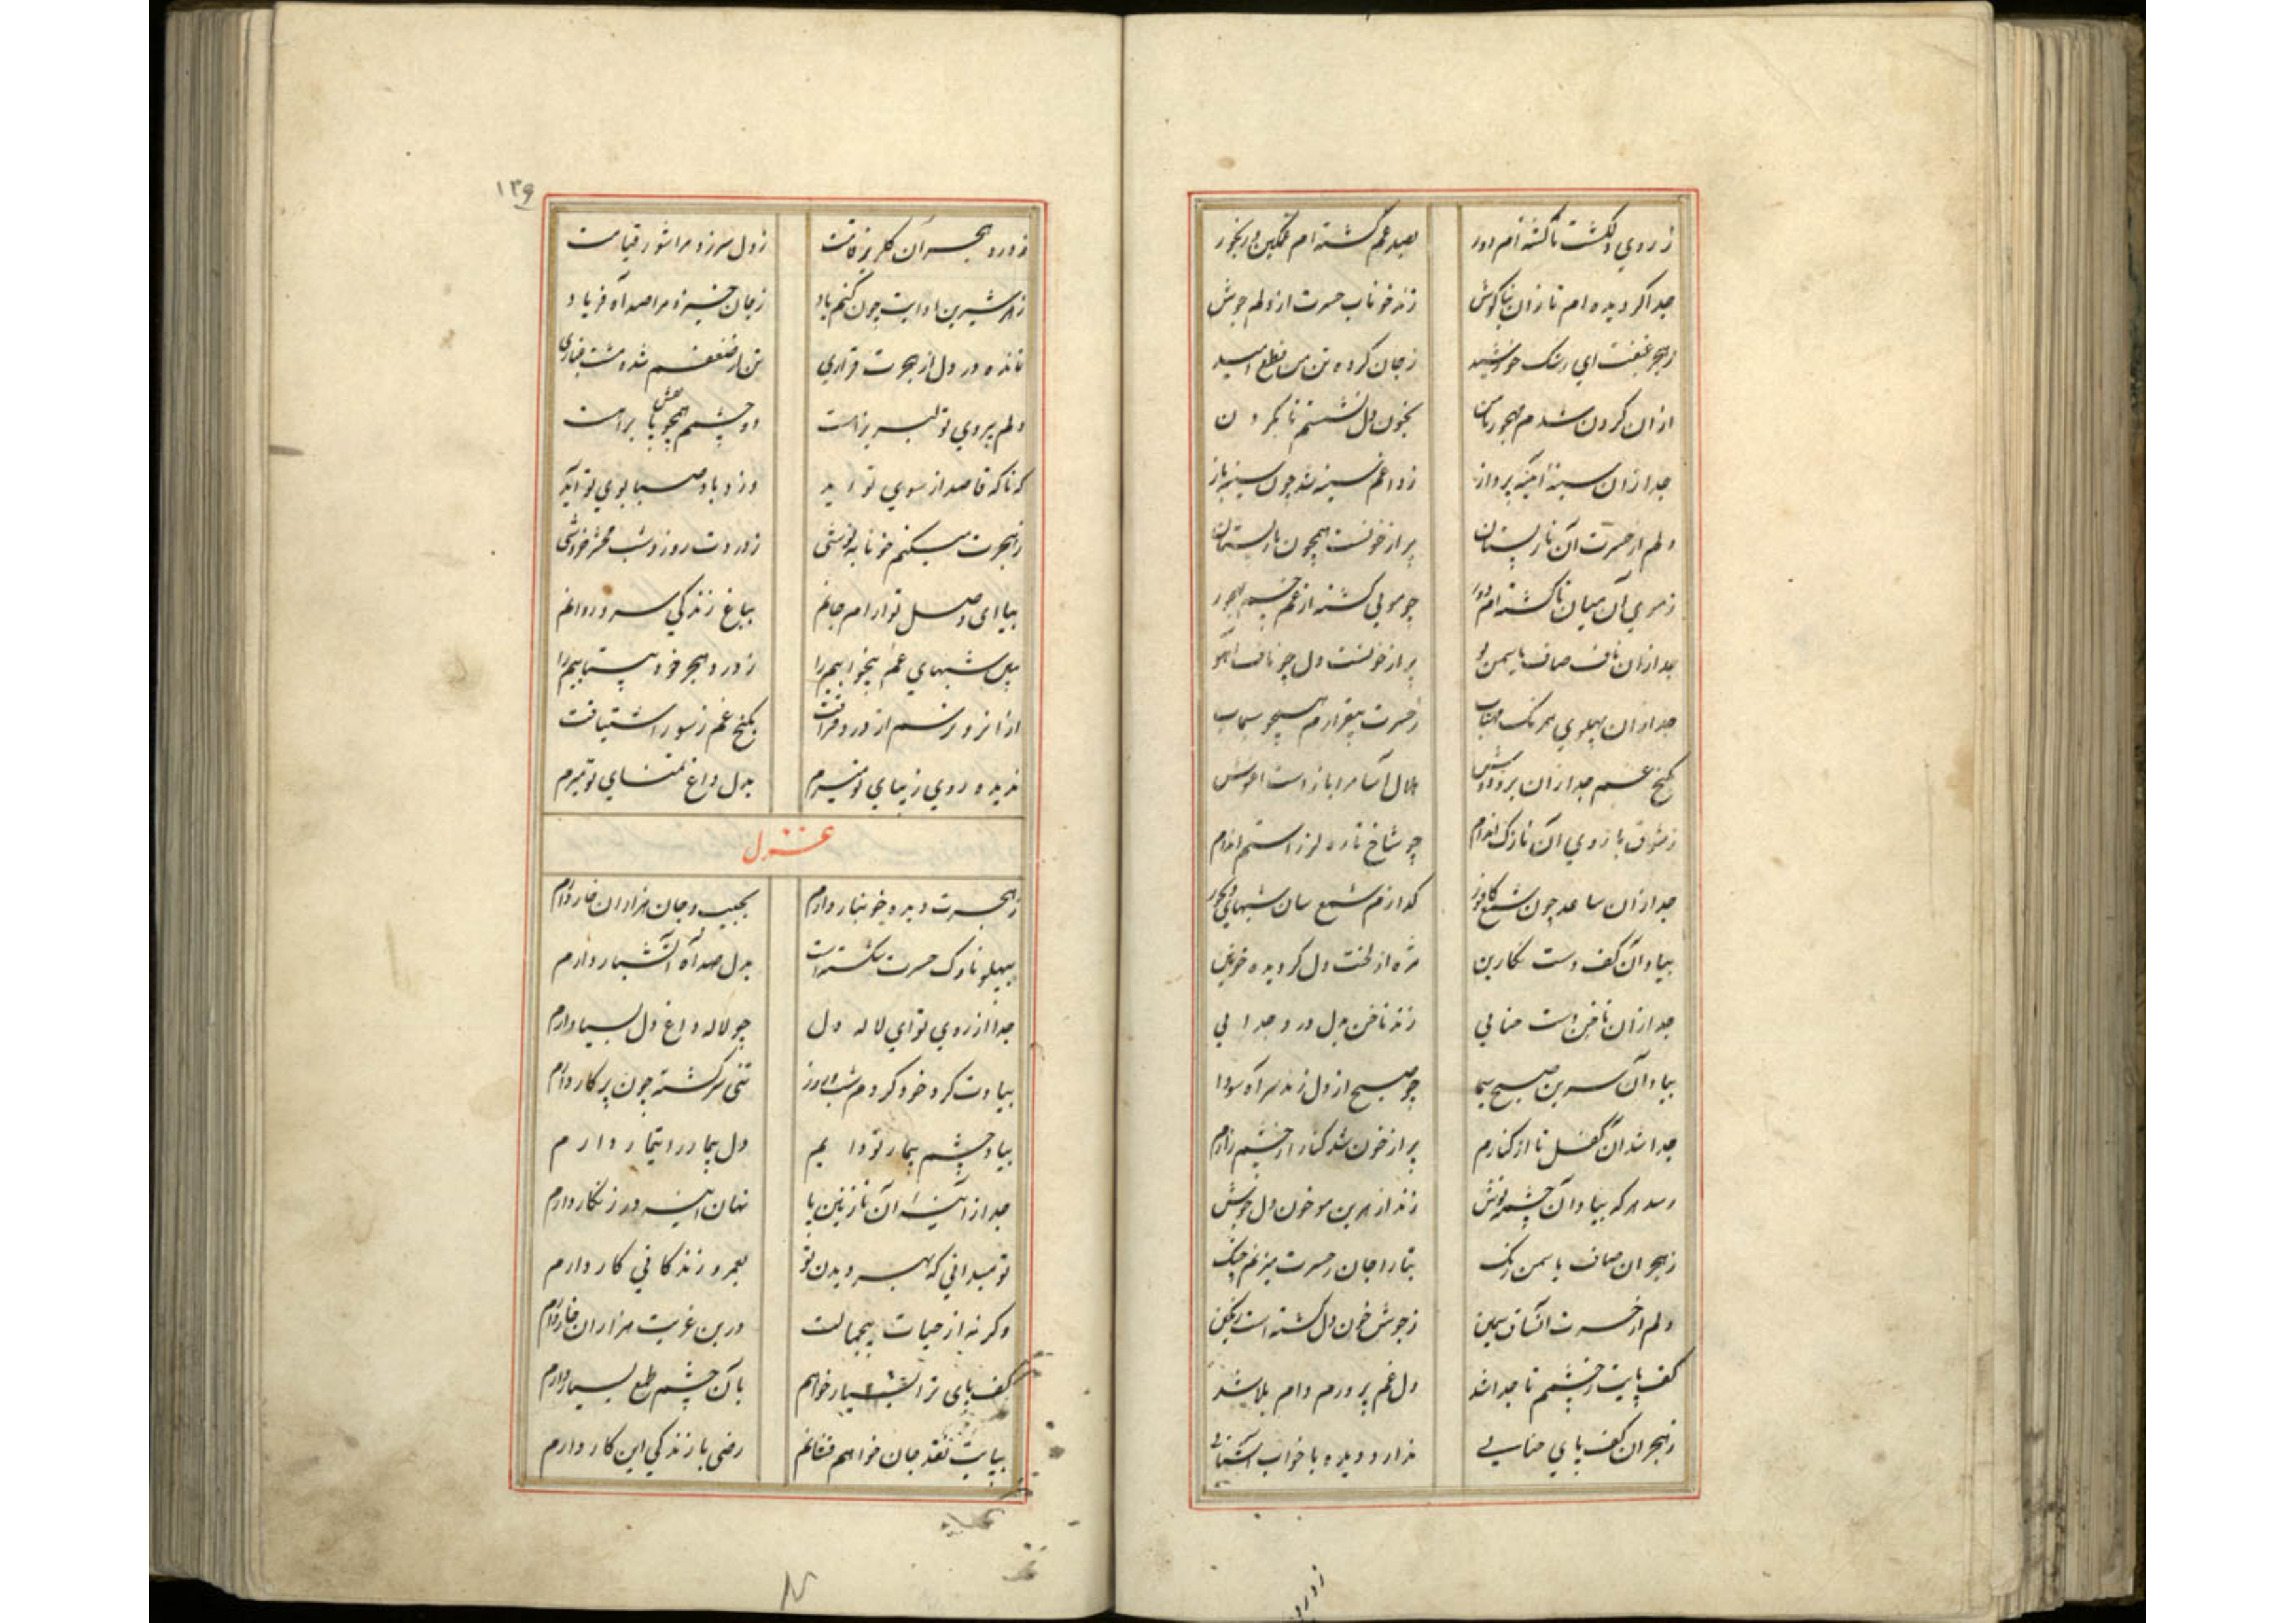 ز روی دلکشت تا گشته‌ام دور بصد غم گشته‌ام غمگین و رنجور
جدا گردیده‌ام تا زان بناگوش زند خوناب حسرت از دلم جوش
ز هجر غبغبت ای رشک خورشید ز جان کرده تن من قطع امید
از ان گردن شدم مهجور تا من بخون دل نشستم تا بگردن
جدا زان سینهٔ آئینه پرداز ز داغم سینه شد چون سینه باز
دلم از حسرت آن نار پستان پر از خونست همچون نار پستان
ز موی آن میان تا گشته‌ام دور چو مویی گشته از غم جسم مهجور
جدا زان ناف صاف یاسمن بو پر از خونست دل چو ناف آهو
جدا زان پهلوی همرنگ مهتاب ز حسرت بیقرارم همچو سیماب
بکنج غم جدا زان بر و دوش هلال آسا مرا باز است اغوش
ز شوق بازوی آن نازک اندام چو شاخ تازه لرزاستم اندام
جدا زان ساعد چون شمع کافور گدازم شمع سان شبهای دیجور
بیاد آن کف دست نگارین مژه از لخت دل گردیده خونین
جدا زان ناخن دست حنایی زند ناخن بدل درد جدایی
بیاد آن سرین صبح سیما چو صبح از دل زند سر آه سودا
جدا شد آن کفل تا از کنارم پر از خون شد کنار از چشم زارم
رسد هر گه بیاد آن چشمه نوش زند از هر بن مو خون دل جوش
ز هجر ان صاف یاسمن رنگ بتار جان ز حسرت میزنم چنگ
دلم از حسرت آنساق سیمین ز جوش خون دل گشته است رنگین
کف پایت ز چشمم تا جدا شد دل غم پرورم دام بلا شد
ز هجر ان کف پای حنایی ندارد دیده با خواب آشنایی
زدرد
۱۳۹
ز درد هجر آن گلریز قامت ز دل سر زد مرا شور قیامت
ز هر شیرین ادایت چون کنم یاد ز جان خیزد مرا صد آه و فریاد
نمانده در دل از هجرت قراری تن از ضعفم شده مشت غباری
دلم بیروی تو لبریز است دو چشم همچو نقش پا براهست
که تا که قاصد از سوی تو آید وزد باد صبا بوی تو آید
ز هجرت میکنم خونابه نوشی ز دردت روز و شب محشر خروشی
بیا ای وصل تو ارام جانم بباغ زندگی سرو روانم
ببین شبهای غم بیخوابیم را ز درد هجر خود بیتابیم را
از آنروز رسم از درد فراقت بکنج غم ز سوز اشتیاقت
ندیده روی زیبای تو میرم بدل داغ تمنای تو میرم
غزل
ز هجرت دیده خونبار دارم بجیب جان هزاران خار دارم
بپهلو ناوک حسرت شکسته است بدل صد آه آتشبار دارم
جدا از روی تو ای لاله دل چو لاله داغ دل بسیار دارم
بیادت گرد خود گردم شب و روز تنی سرگشته چون پرکار دارم
بیاد چشم بیمار تو دایم دل بیمار در انیمار دارم
جدا از آینهٔ آن نازنین پا نهان اینه در زنگار دارم
تو میدانی که بهر دیدن تو بعمر و زندگانی کار دارم
وگرنه از حیات بیجمالت درین غربت هزاران خار دارم
کف پای ترا بسیار خواهم با آن چشم طمع بسیار دارم
بپایت نقد جان خواهم فشانم رضی با زندگی این کار دارم